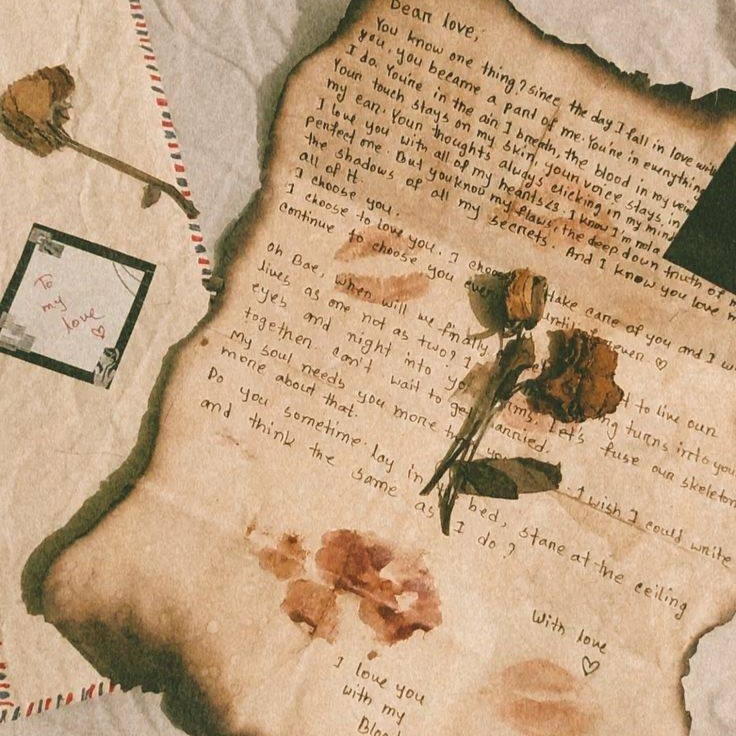 Dear love,
You know one thing? Since the day I fall in love with
you, you became a part of me. You're in everything
I do. You're in the air I breath, the blood in my vein
Your touch stays on my skin, your voice stays in
my ear. Your thoughts always clicking in my mind
I love you with all of my hearts. I know I'm not a
perfect one. But you know my flaws, the deep down truth of
the shadows of all my secrets. And I know you love
all of it.
I choose you.
I choose to love you. I choose take care of you and I
continue to choose you until forever ♡
Oh Bae, when will we finally to live our
lives as one not as two? I turns into you
eyes and night into Let's fuse our skeleton
together. Can't wait to get married.
My soul needs you more I wish I could write
more about that.
Do you sometime lay in bed, stare at the ceiling
and think the same as I do?
With love
♡
I love you
with my
Blood
To
my
love ♡